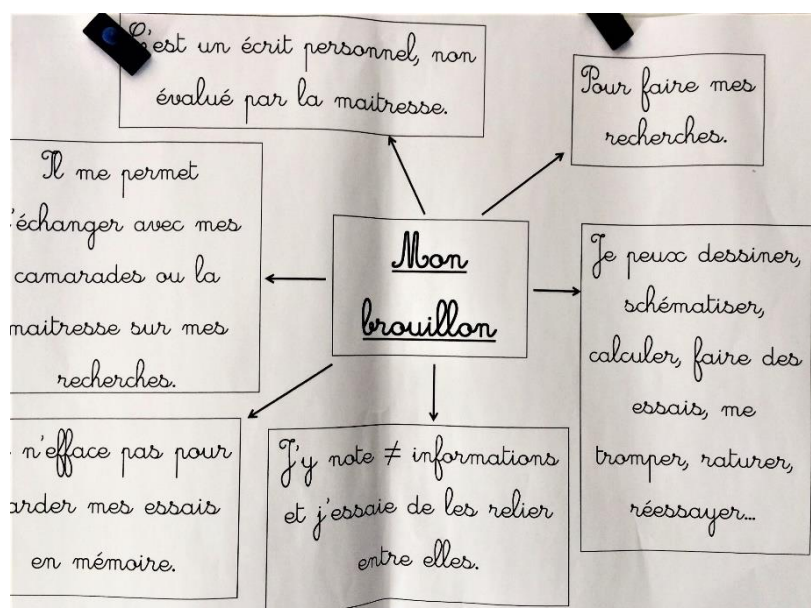 C'est un écrit personnel, non
évalué par la maitresse.
Pour faire mes
recherches.
Il me permet
'échanger avec mes
camarades ou la
maitresse sur mes
recherches.
Mon
brouillon
Je peux dessiner,
schématiser,
calculer, faire des
essais, me
tromper, raturer,
réessayer...
n'efface pas pour
arder mes essais
en mémoire.
J'y note ≠ informations
et j'essaie de les relier
entre elles.